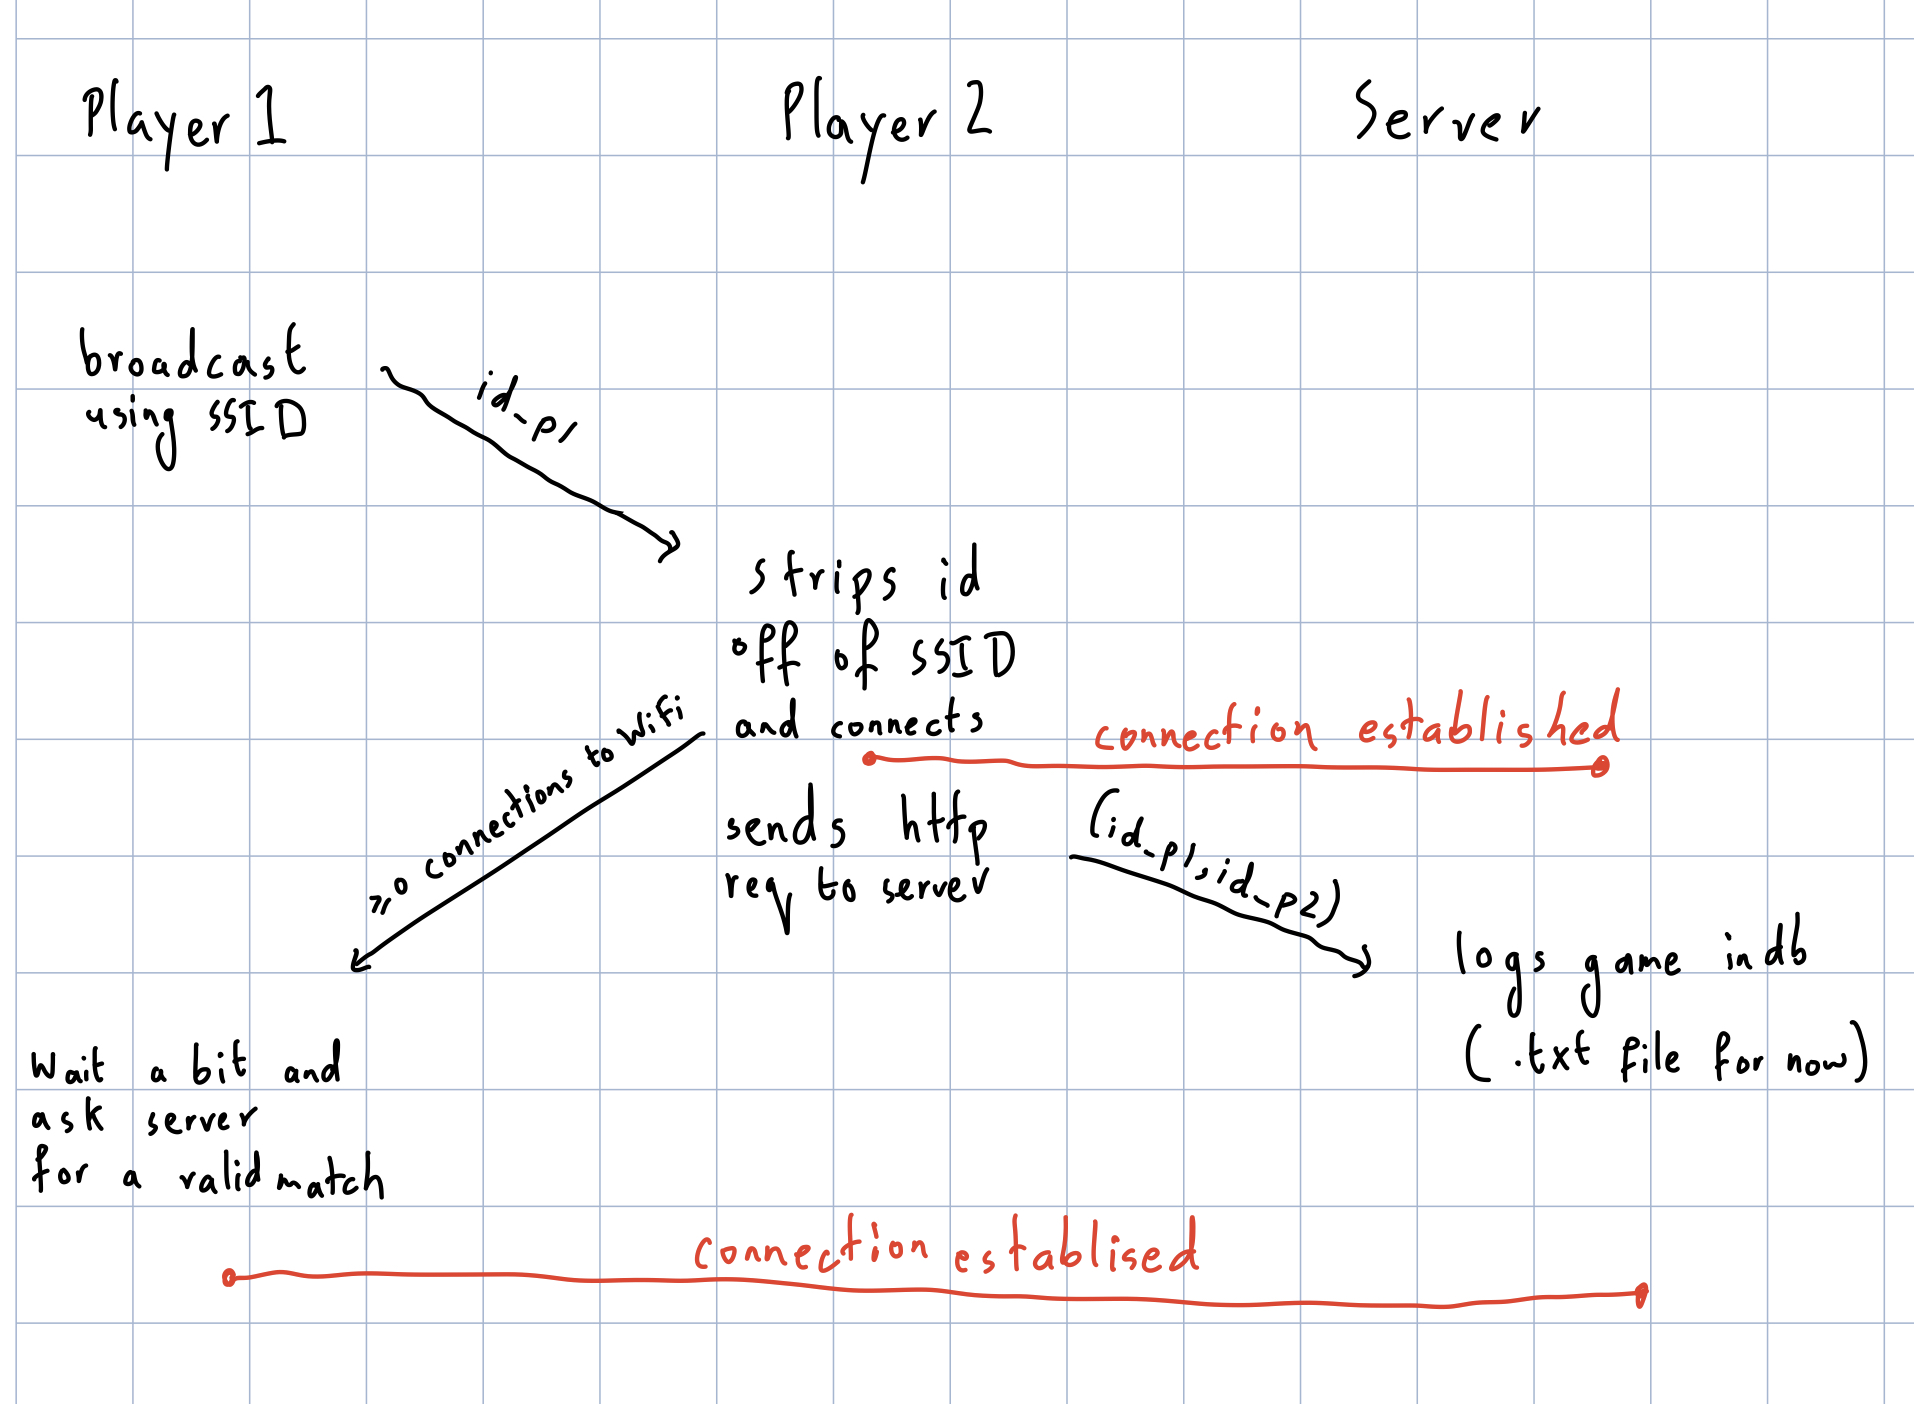 Player 1
Player 2
Server
broadcast
using SSID
id_p1
strips id
off of SSID
and connects
connection established
≥0 connections to WiFi
sends http
req to server
(id_p1,id_p2)
logs game in db
(.txt file for now)
Wait a bit and
ask server
for a valid match
connection establised